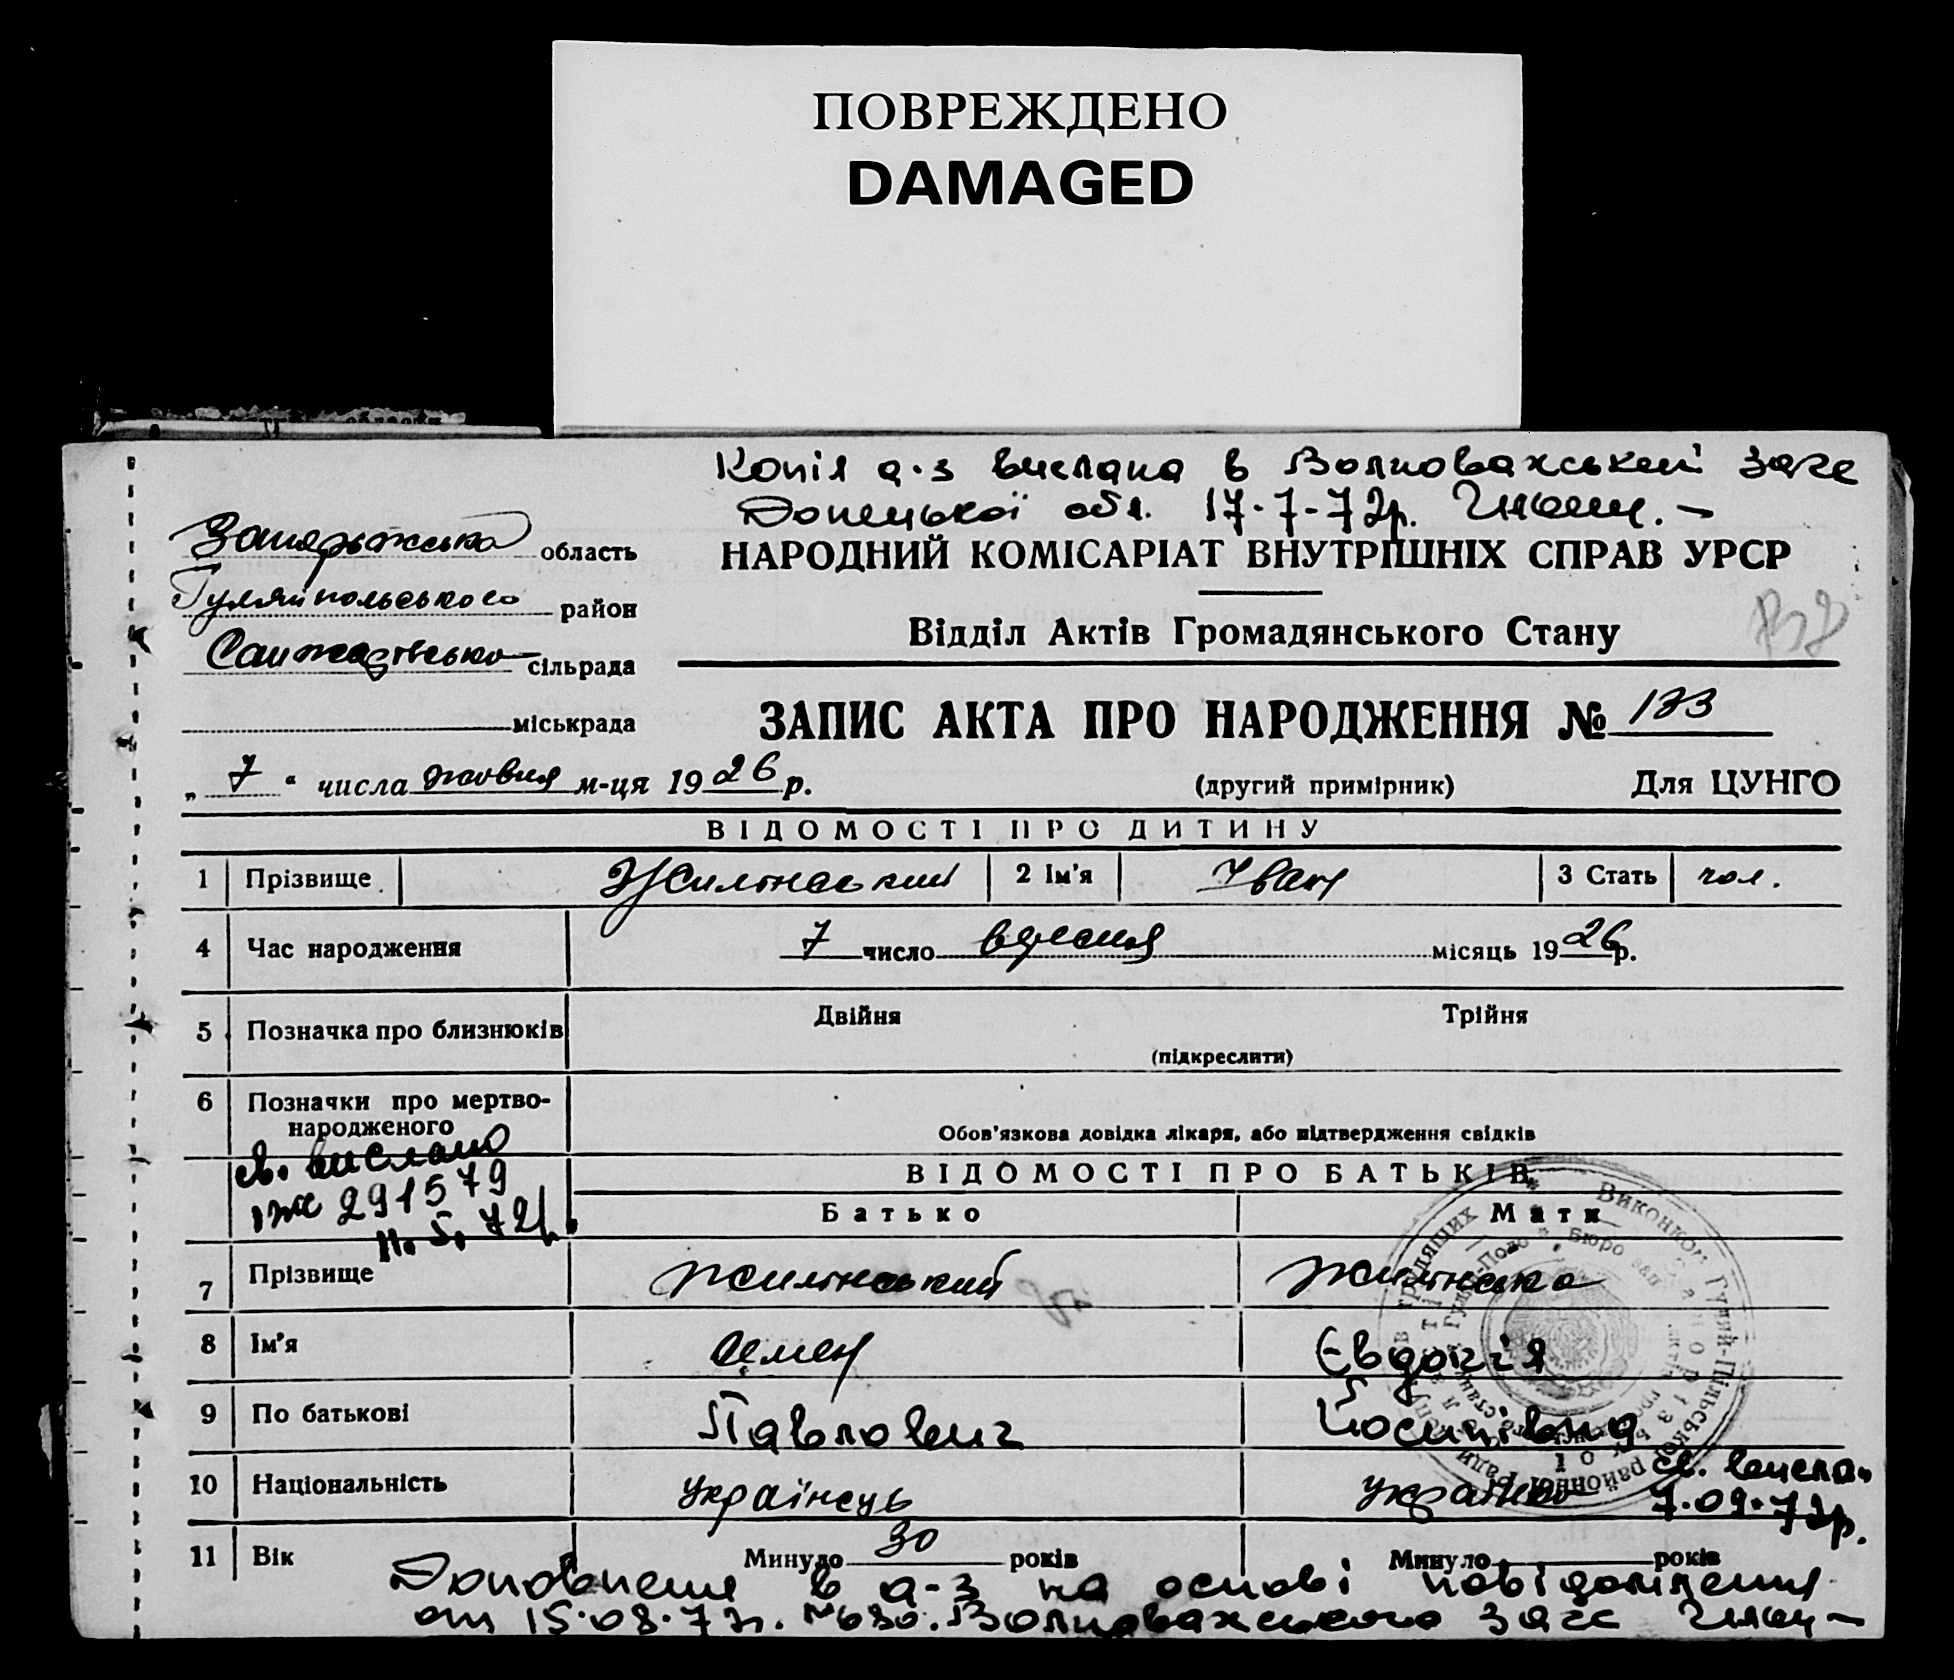 ПОВРЕЖДЕНО
DAMAGED
Копія а-з вислана в Волновахський загс
Донецької обл. 17-7-72р.
Запорізька область
Гуляйпольського район
сільрада
міськрада
НАРОДНИЙ КОМІСАРІАТ ВНУТРІШНІХ СПРАВ УРСР
Відділ Актів Громадянського Стану
ЗАПИС АКТА ПРО НАРОДЖЕННЯ № 133
„ 7 “ числа жовтня м-ця 1926 р.
(другий примірник) Для ЦУНГО
ВІДОМОСТІ ПРО ДИТИНУ
1 Прізвище Жилінський 2 Ім'я Іван 3 Стать чол.
4 Час народження 7 число вересня місяць 1926р.
5 Позначка про близнюків Двійня Трійня
(підкреслити)
6 Позначки про мертво-
народженого
Обов'язкова довідка лікаря, або підтвердження свідків
св. вислано
291579
11.5.72р.
ВІДОМОСТІ ПРО БАТЬКІВ
Батько Мати
7 Прізвище Жилінський Жилінська
8 Ім'я Семен Євдокія
9 По батькові Павлович Йосипівна
10 Національність українець українка
св. вислан
7.09.72р.
11 Вік Минуло 30 років Минуло років
Доповнення в а-з на основі повідомлення
от 15.08.72р. №630. Волновахського загс